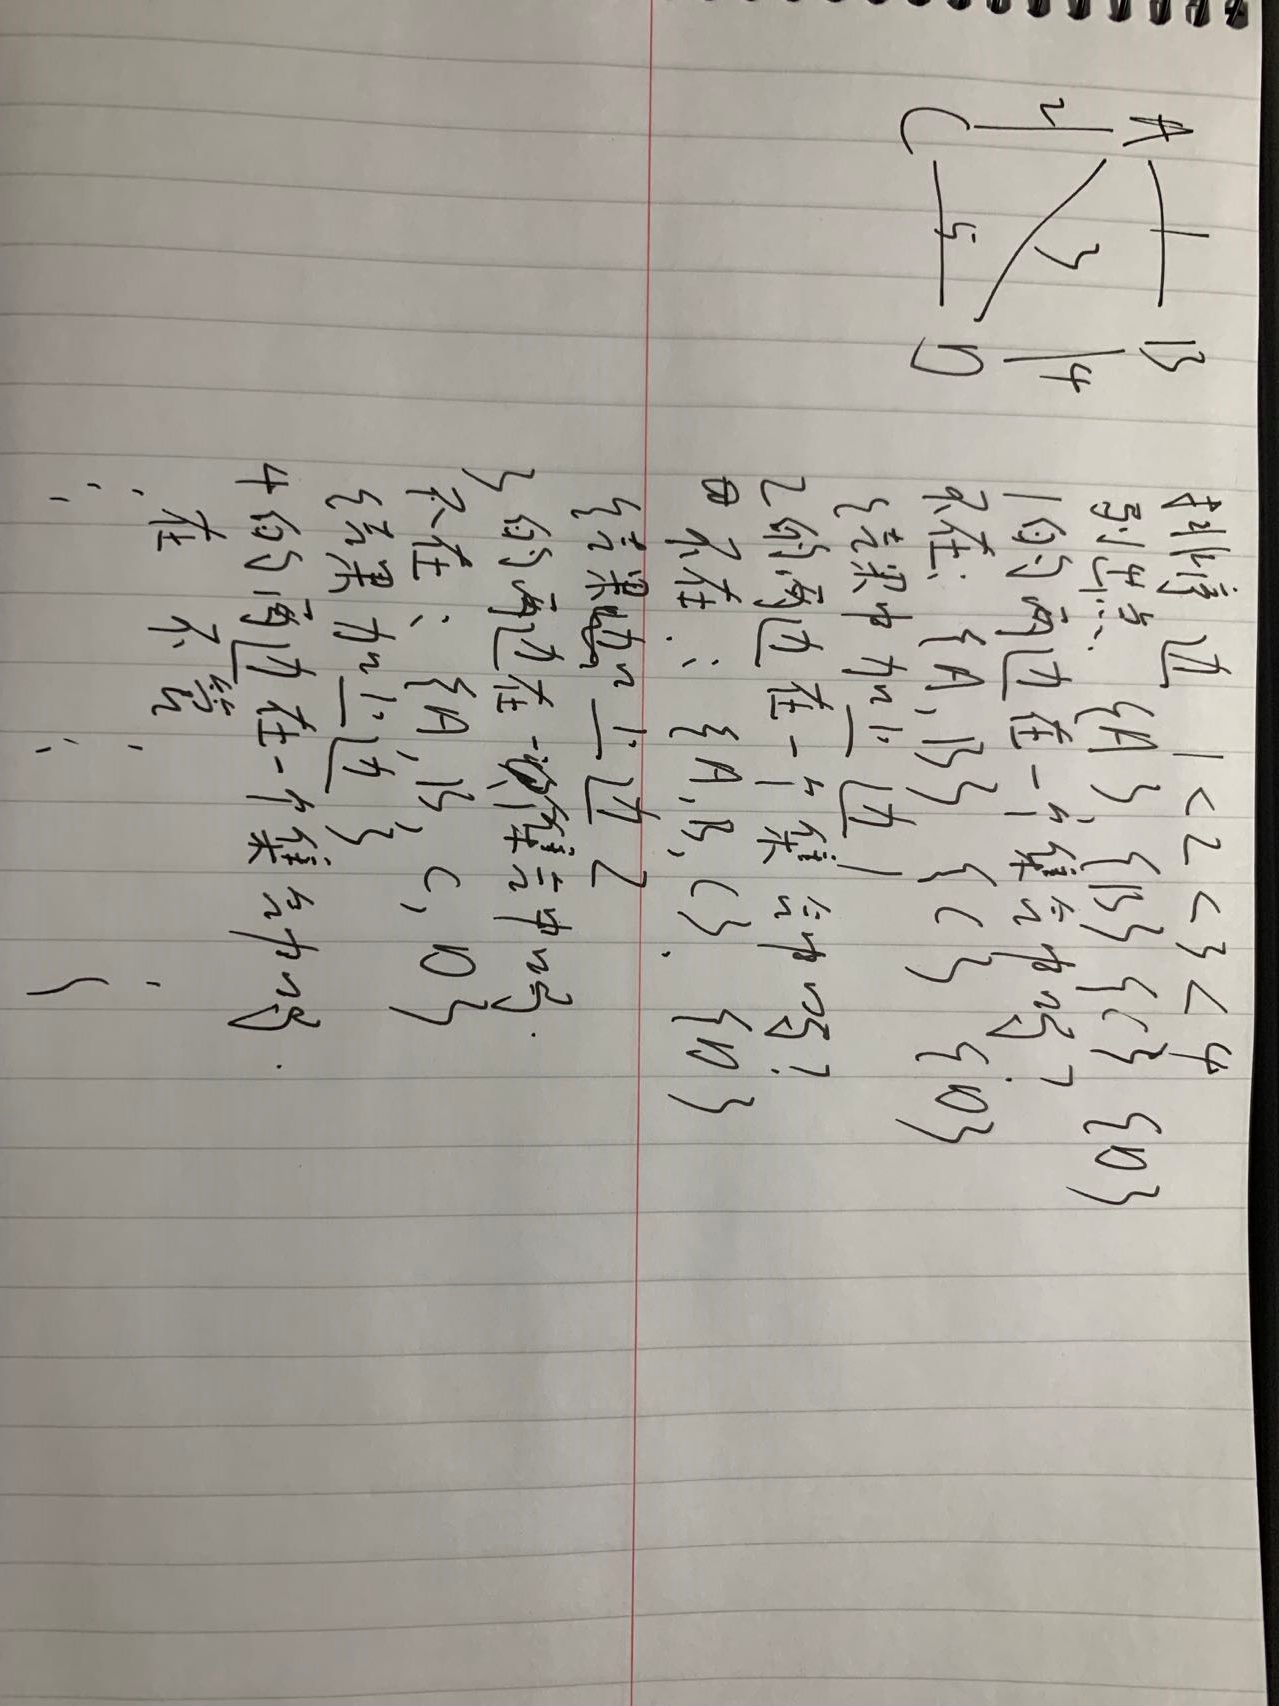 A 1 B
2 3 4
C 5 D
排序 边 1 < 2 < 3 < 4
别点: {A}, {B} {C} {D}
1的两边在一个集合中吗?
不在: {A, B} {C} {D}
结果中加上边1
2的两边在一个集合中吗?
不在: {A, B, C}. {D}
结果加上边2
3的两边在一个集合中吗.
不在: {A, B, C, D}
结果加上边3
4的两边在一个集合中吗.
在 不管